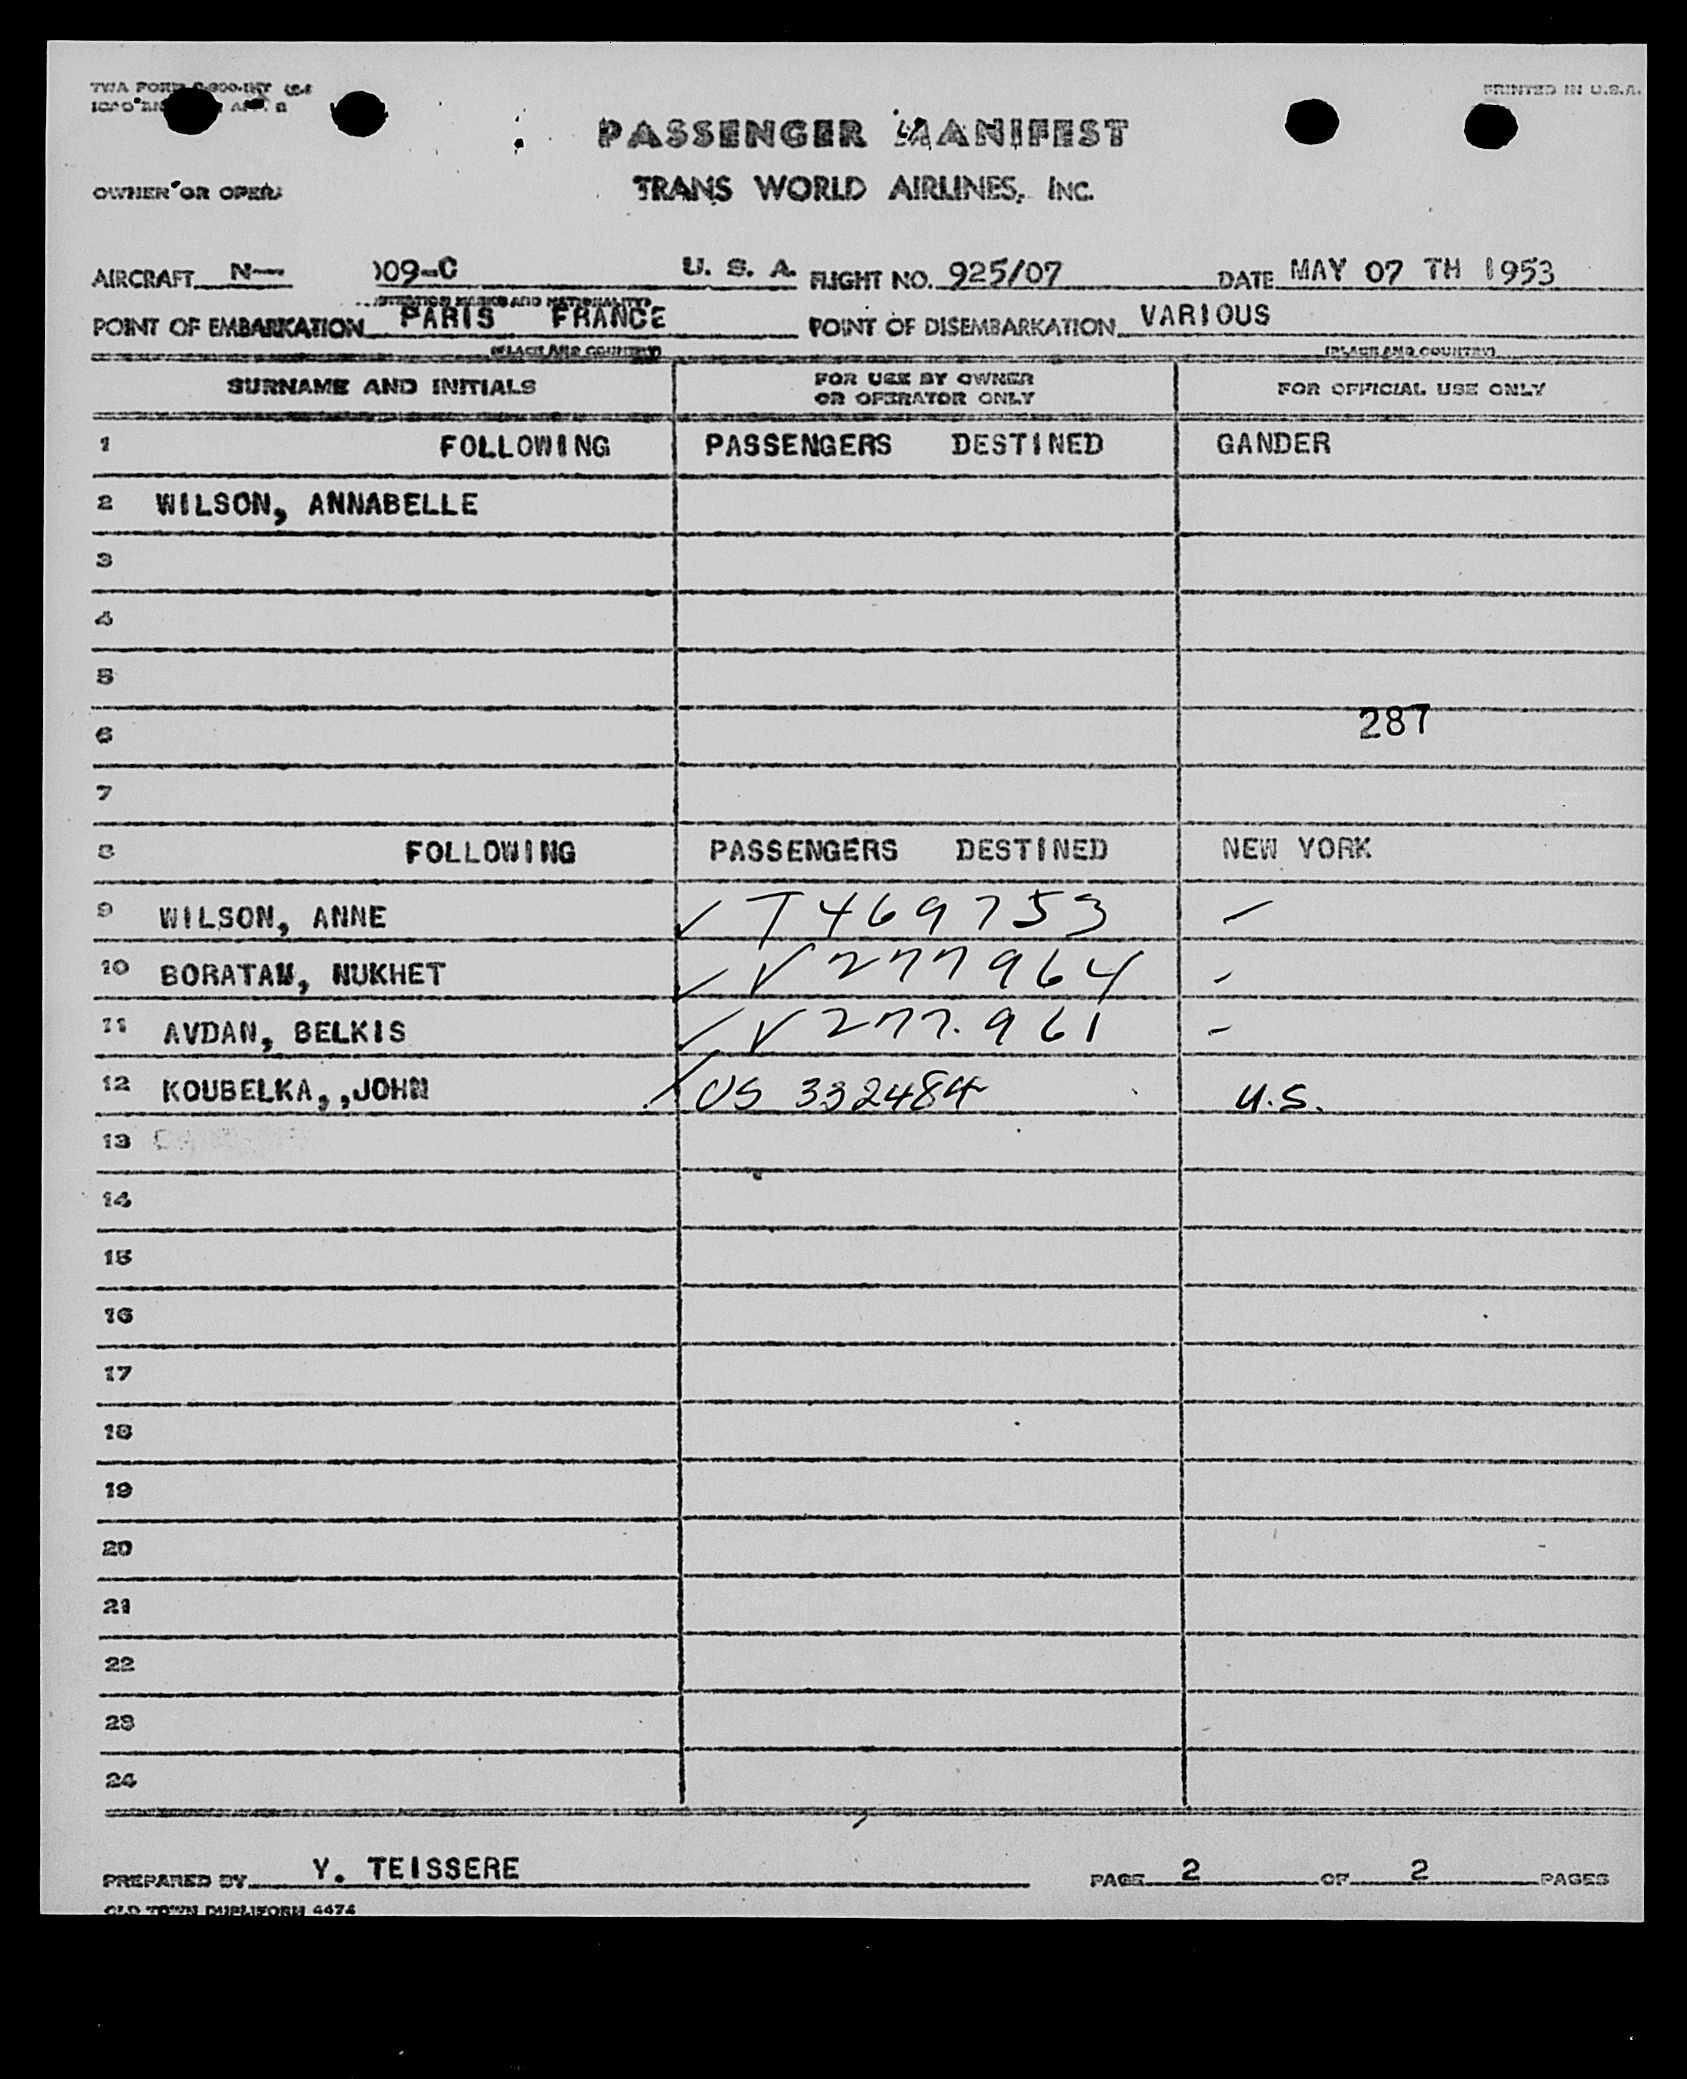 PRINTED IN U.S.A.
PASSENGER MANIFEST
OWNER OR OPER
TRANS WORLD AIRLINES, INC.
AIRCRAFT N— 09-C U. S. A. FLIGHT NO. 925/07 DATE MAY 07 TH 1953
MARKS AND NATIONALITY)
POINT OF EMBARKATION PARIS FRANCE POINT OF DISEMBARKATION VARIOUS
(PLACE AND COUNTRY) (PLACE AND COUNTRY)
SURNAME AND INITIALS FOR USE BY OWNER OR OPERATOR ONLY FOR OFFICIAL USE ONLY
1 FOLLOWING PASSENGERS DESTINED GANDER
2 WILSON, ANNABELLE
3
4
5
6 287
7
8 FOLLOWING PASSENGERS DESTINED NEW YORK
9 WILSON, ANNE ✓ T469753 –
10 BORATAN, NUKHET ✓ V277964 –
11 AVDAN, BELKIS ✓ V277.961 –
12 KOUBELKA,,JOHN ✓ US 332484 U.S.
13
14
15
16
17
18
19
20
21
22
23
24
PREPARED BY Y. TEISSERE PAGE 2 OF 2 PAGES
OLD TOWN DUPLIFORM 4474